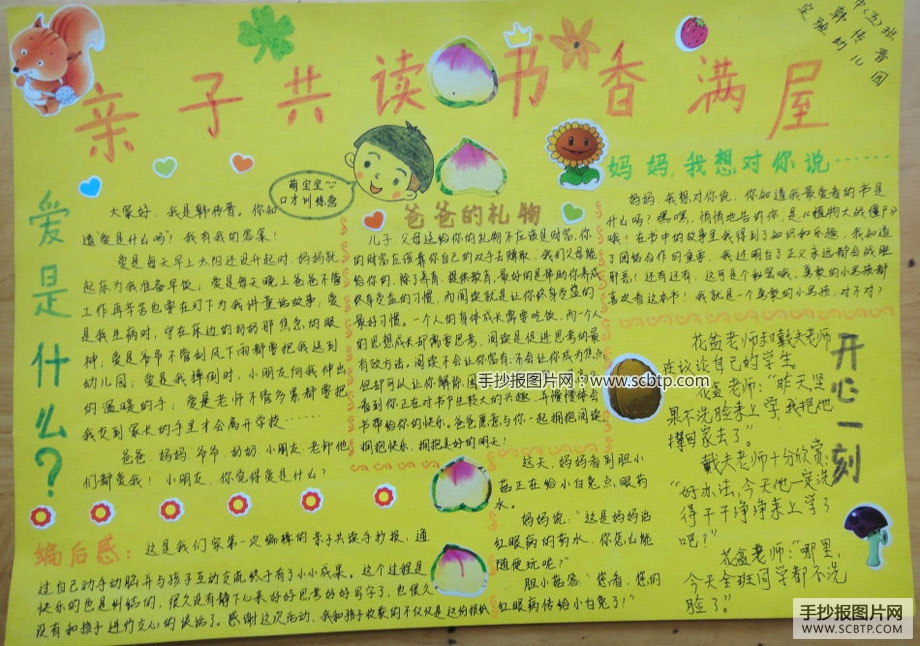 亲子共读书香满屋
中(五)班
韩传晋
实验幼儿园
爱是什么？
大家好，我是韩传晋。你知
道"爱是什么吗"？我有我的答案！
爱是每天早上太阳还没升起时，妈妈就
起床为我准备早饭；爱是每天晚上爸爸不管
工作再辛苦也要在灯下为我讲童话故事；爱
是我生病时，守在床边的奶奶那焦急的眼
神；爱是爷爷不管刮风下雨都要把我送到
幼儿园；爱是我摔倒时，小朋友向我伸出
的温暖的手；爱是老师不管多累都要把
我交到家长的手里才会离开学校……
爸爸、妈妈、爷爷、奶奶、小朋友、老师他
们都爱我！小朋友，你觉得爱是什么？
萌宝宝
口才训练营
爸爸的礼物
儿子，父母送给你的礼物不应该是财富，你
的财富应该靠你自己的双手去赚取，我们父母能
给你的，除了养育、提供教育，最好的是帮助你养成
终身受益的习惯，而阅读就是让你终身受益的
最好习惯。一个人的身体成长需要吃饭，而一个人
的思想成长却需要思考，阅读是促进思考的最
有效方法，阅读不会让你富有，不会让你成功，
但却可以让你解惑，
看到你正在对书产生较大的兴趣，并慢慢体会
书带给你的快乐。爸爸愿意与你一起拥抱阅读，
拥抱快乐，拥抱美好的明天！
妈妈，我想对你说……
妈妈，我想对你说，你知道我最爱看的书是
什么吗？嘿嘿，悄悄地告诉你，是《植物大战僵尸》
哦！在书中的故事里我得到了知识和乐趣，我知道
了团结合作的重要，我还明白了正义永远都会战胜
邪恶！还有还有，这可是个秘密哦，勇敢的小男孩都
喜欢看这本书！我就是一个勇敢的小男孩，对不对？
开心一刻
花盆老师和戴夫老师
在议论自己的学生。
花盆老师："昨天坚
果不洗脸来上学，我把他
撵回家去了"。
戴夫老师十分欣赏：
"好办法，今天他一定洗
得干干净净来上学了
吧？"
花盆老师："哪里，
今天全班同学都不洗
脸了。"
这天，妈妈看到胆小
菇正在给小白兔点眼药
水。
妈妈说："这是妈妈治
红眼病的药水，你怎么能
随便玩呢？"
胆小菇答："您看，您的
红眼病传给小白兔了！"
编后感：这是我们家第一次编辑的亲子共读手抄报，通
过自己动手动脑并与孩子互动交流终于有了小小成果。这个过程是
快乐的也是纠结的，很久没有静下心来好好思考好好写字了，也很久
没有和孩子进行交心的谈话了。感谢这次活动，我和孩子收获的不仅仅是这份报纸
手抄报图片网：www.scbtp.com
手抄报图片网
WWW.SCBTP.COM